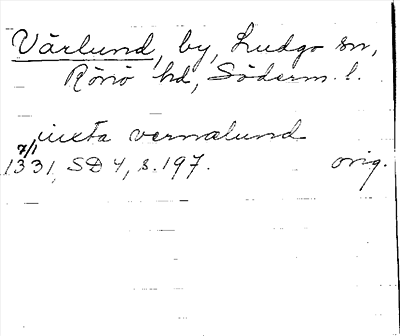 Vårlund, by, Ludgo sn,
Rönö hd, Söderm. l.
iuxta vernalund
7/1
1331, SD 4, s. 197. orig.